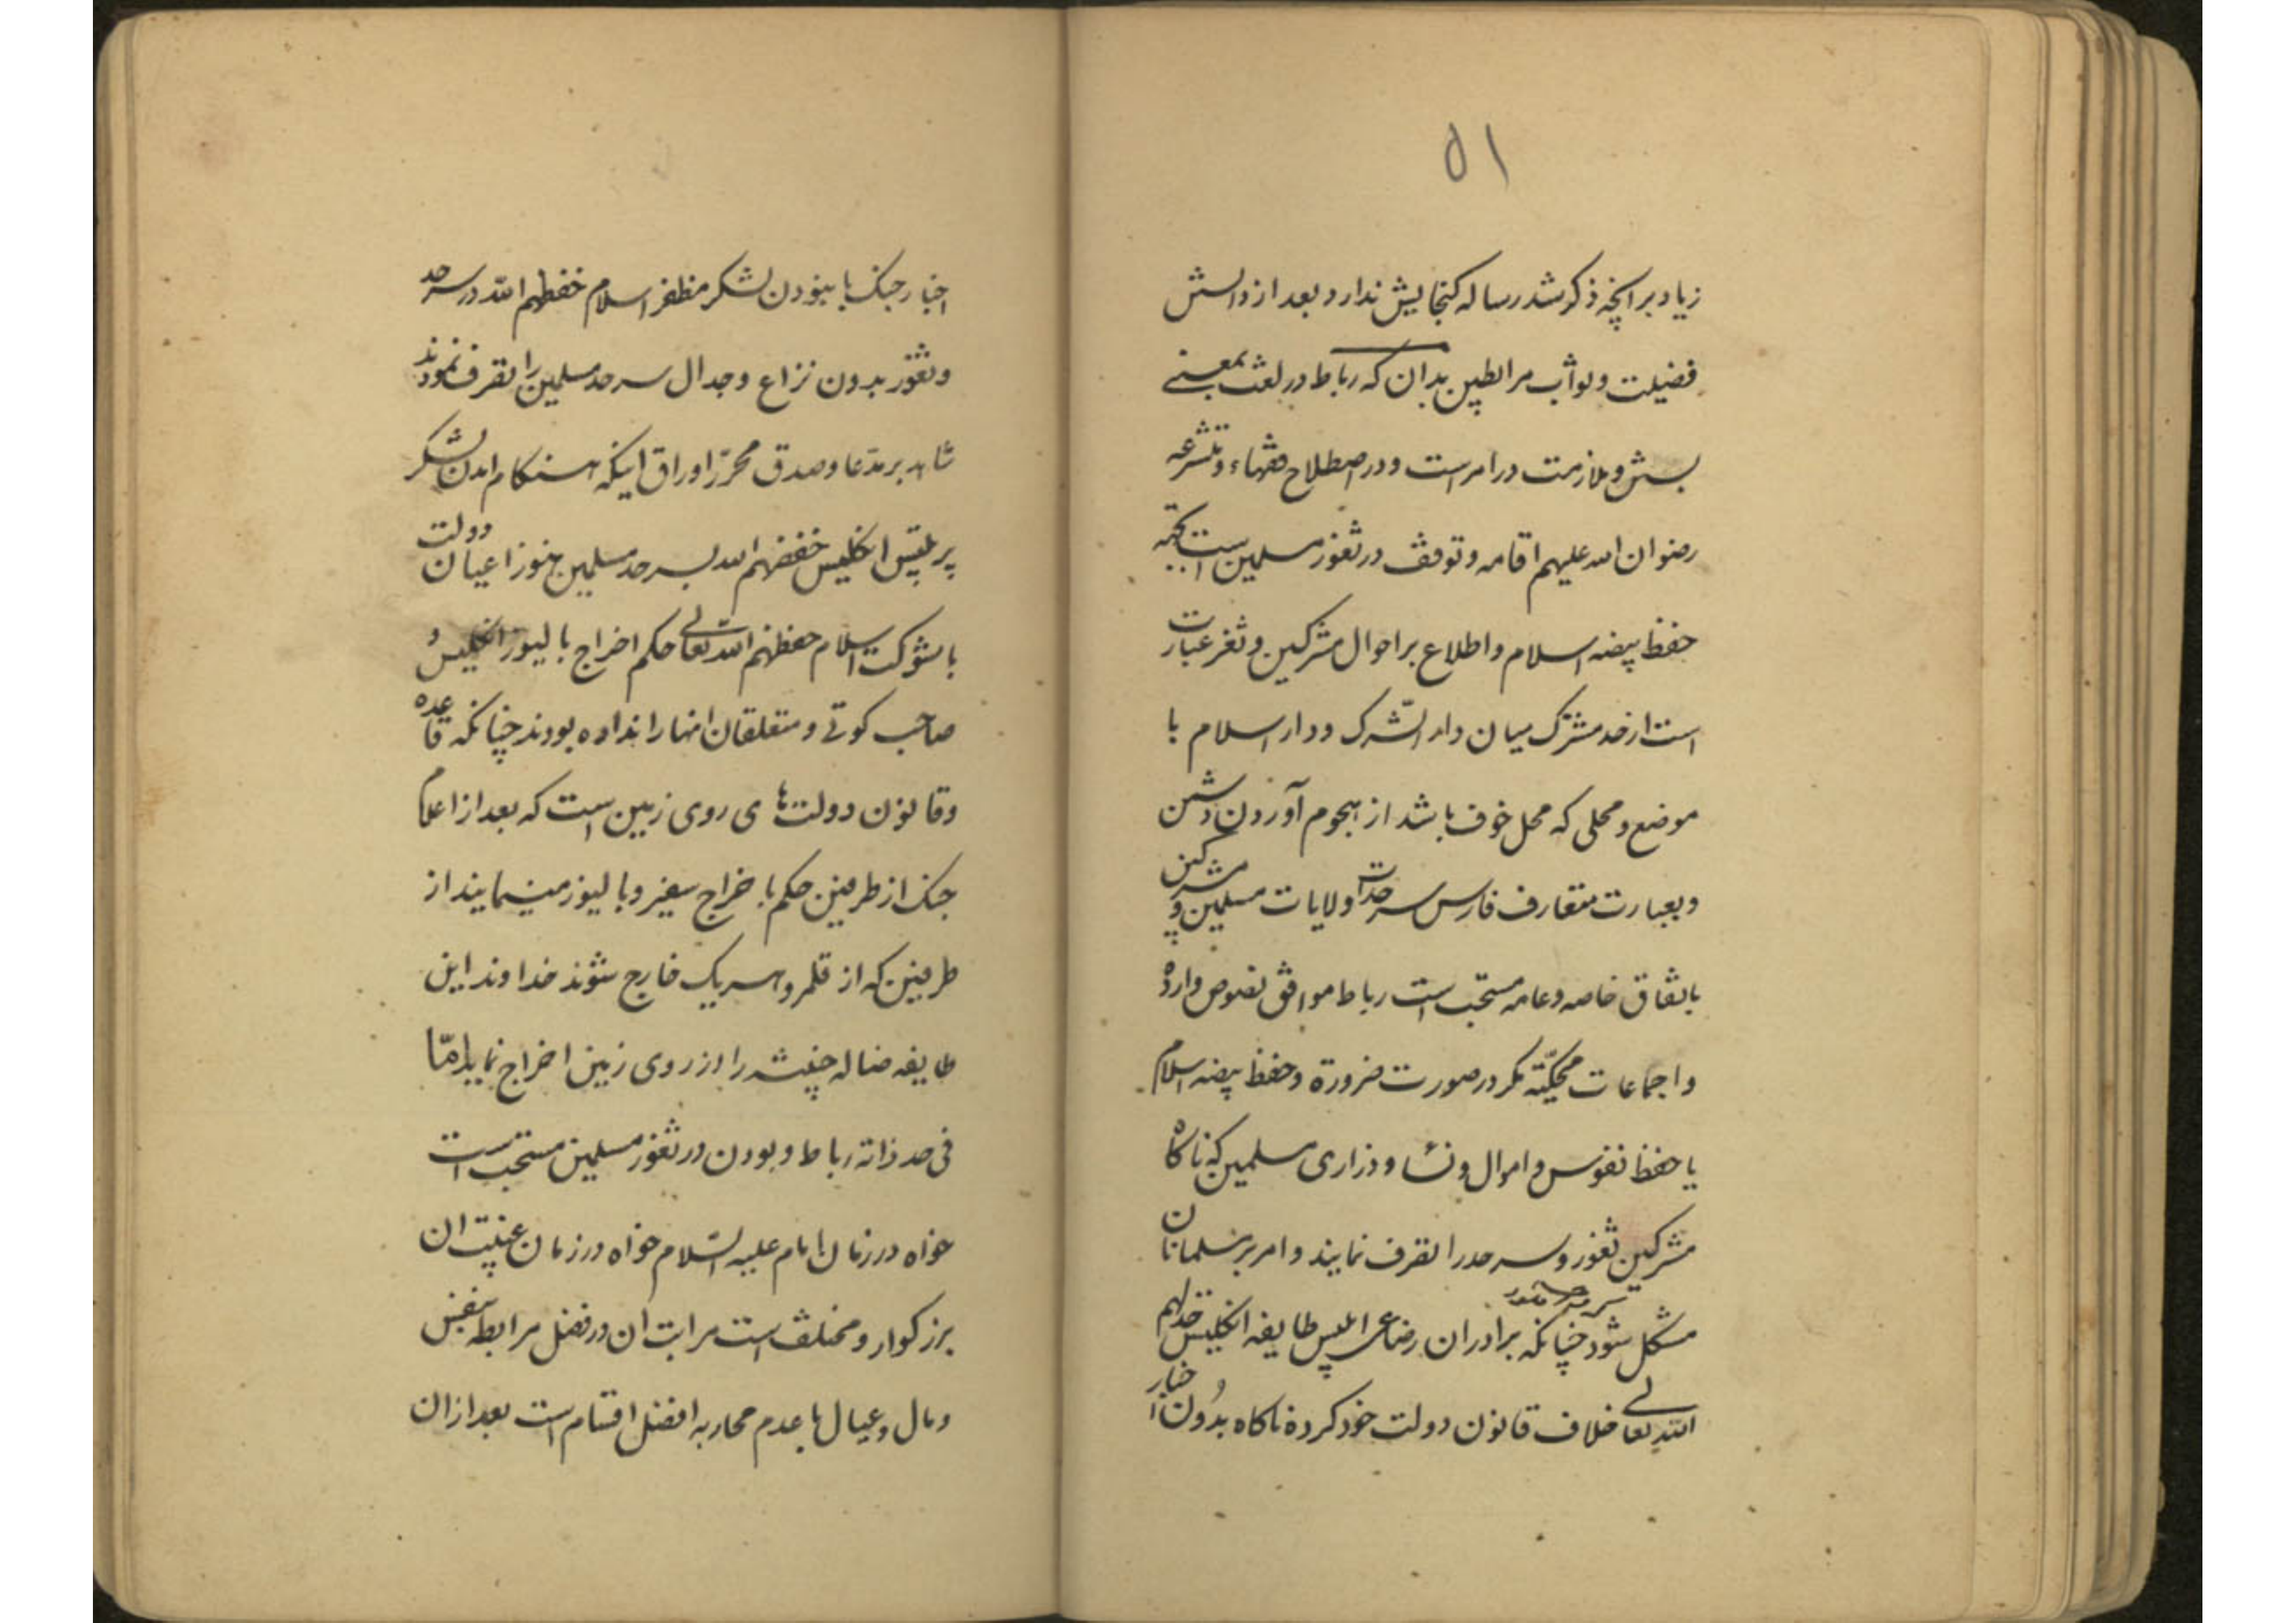 ۵۱
زیاد بر انچه ذکر شد رساله کنجایش ندارد و بعد از دانستن
فضیلت و ثواب مرابطین بدان که رباط در لغت بمعنی
بستن و ملازمت در امر است و در اصطلاح فقهاء و متشرعه
رضوان الله علیهم اقامه و توقف در ثغور مسلمین است بجهة
حفظ بیضه اسلام و اطلاع بر احوال مشرکین و ثغر عبارت
است از حد مشترک میان دار الشّرک و دار اسلام یا
موضع و محلی که محل خوف باشد از هجوم آوردن دشمن
و بعبارت متعارف فارس سرحدات ولایات مسلمین و مشرکین
باتفاق خاصه و عامه مستحب است رباط موافق نصوص وارده
و اجماعات محکیّه مکر در صورت ضرورة و حفظ بیضه اسلام
یا حفظ نفوس و اموال و نساء و ذراری مسلمین که ناکاه
مشرکین ثغور و سرحد را تصرف نمایند و امر بر مسلمانان
مشکل شود چنانکه برادران رضاعی ابلیس طایفه انکلیس خذلهم
الله تعالی خلاف قانون دولت خود کرده ناکاه بدُون اخبار
اخبار جنک با نبودن لشکر مظفر اسلام حفظهم الله در سرحد
و ثغور بدون نزاع و جدال سرحد مسلمین را تصرف نمودند
شاهد بر مدّعا و صدق محرّر اوراق اینکه هنکام امدن لشکر
پر تلبیس انکلیس خفضهم الله بسرحد مسلمین هنوز اعیان دولت
با شوکت اسلام حفظهم الله تعالی حکم اخراج بالیوز انکلیس و
صاحب کوتی و متعلقان انها را نداده بودند چنانکه قاعده
و قانون دولت های روی زمین است که بعد از اعلام
جنک از طرفین حکم باخراج سفیر و بالیوز مینمایند از
طرفین که از قلمرو هر یک خارج شوند خداوند این
طایفه ضاله خبیثه را از روی زمین اخراج نماید امّا
فی حد ذاته رباط و بودن در ثغور مسلمین مستحب است
خواه در زمان امام علیه السّلام خواه در زمان غیبت ان
بزرکوار و مختلف است مراتب ان در فضل مرابطه بنفس
و مال و عیال با عدم محاربه افضل اقسام است بعد از ان